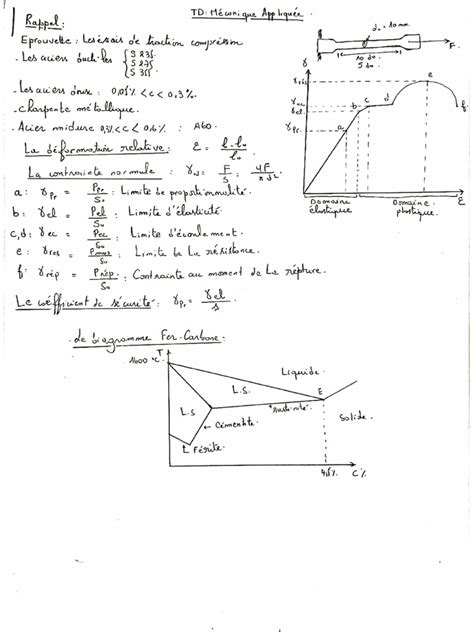 TD: Mécanique Appliquée.
Rappel:
Eprouvette: Les éssais de traction compréssion
d₀ = 10mm
F
10 d₀
5 d₀
- Les aciers
S 235
S 275
S 355
- Les aciers doux: 0,05% < c < 0,3%.
- Charpente métallique.
- Acier midure 0,3% < c < 0,6% : A60
La déformation relative: ε = l-l₀ / l₀
La contrainte normale: γ = F/S = 4F/πd²
a: γpr = Ppr/S₀ : Limite de proportionnalité.
b: γel = Pel/S₀ : Limite d'élasticité.
c,d: γec = Pec/S₀ : Limite d'écoulement.
e: γres = Pmax/S₀ : Limite be La résistance.
f: γrép = Prép/S₀ : Contrainte au moment de La répture.
Le coéfficient de sécurité: γp = γel/s
γ
γrés
γec
γel
γpr
a
b
c
d
e
f
ε
Domaine élastique
Domaine plastique
de diagramme Fer-Carbone:
T
1600 °C
Liquide.
L.S.
E
L.S
Solide.
Cémentite
L Férite.
C%